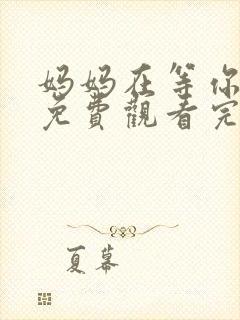 妈妈在等你
免費觀看完
夏幕